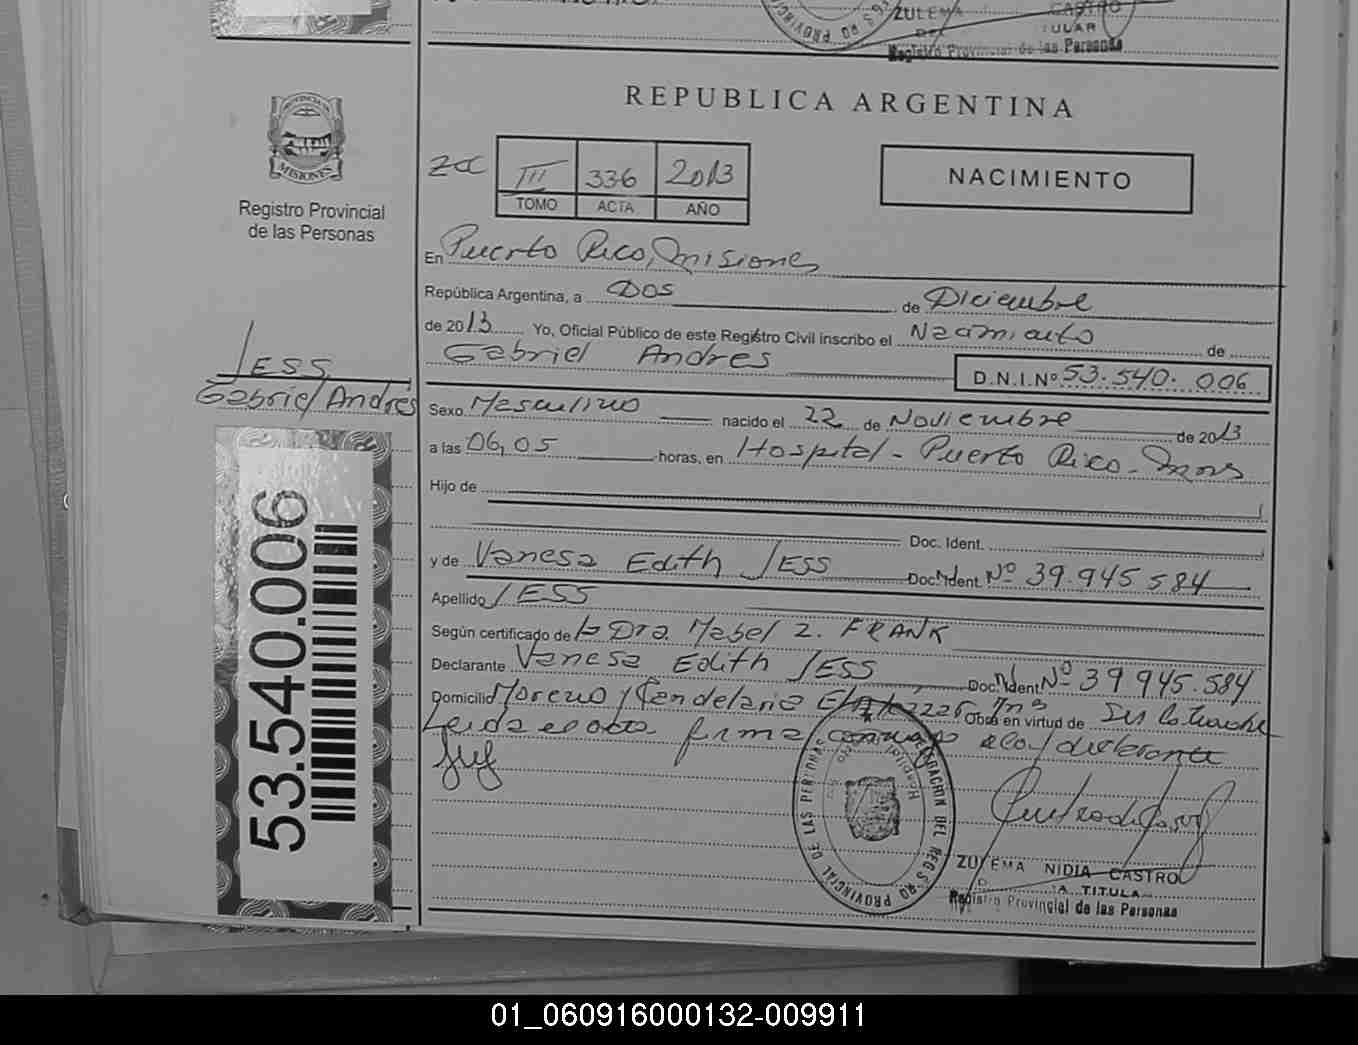 ZULEMA CASTRO
TULAR
Registro Provincial de las Personas
REPUBLICA ARGENTINA
PROVINCIA DE
MISIONES
Registro Provincial
de las Personas
III 336 2013
TOMO ACTA AÑO
NACIMIENTO
En Puerto Rico, Misiones
República Argentina, a Dos de Diciembre
de 2013 Yo, Oficial Público de este Registro Civil inscribo el Nacimiento de
Gabriel Andres
D.N.I.Nº 53.540.006
JESS
Gabriel Andrés
Sexo Masculino nacido el 22 de Noviembre de 2013
a las 06,05 horas, en Hospital - Puerto Rico - Mnes
Hijo de
Doc. Ident.
y de Vanesa Edith JESS Doc. Ident. Nº 39.945.584
Apellido JESS
Según certificado de la Dra. Mabel Z. FRANK
Declarante Vanesa Edith JESS Doc. Ident. Nº 39.945.584
Domicilio Moreno y Candelaria Mns Obra en virtud de
Leida el acta firma conmigo declarante
53.540.006
REGISTRO PROVINCIAL DE LAS PERSONAS
DELEGACION DEL
ZULEMA NIDIA CASTRO
TITULAR
Registro Provincial de las Personas
01_060916000132-009911